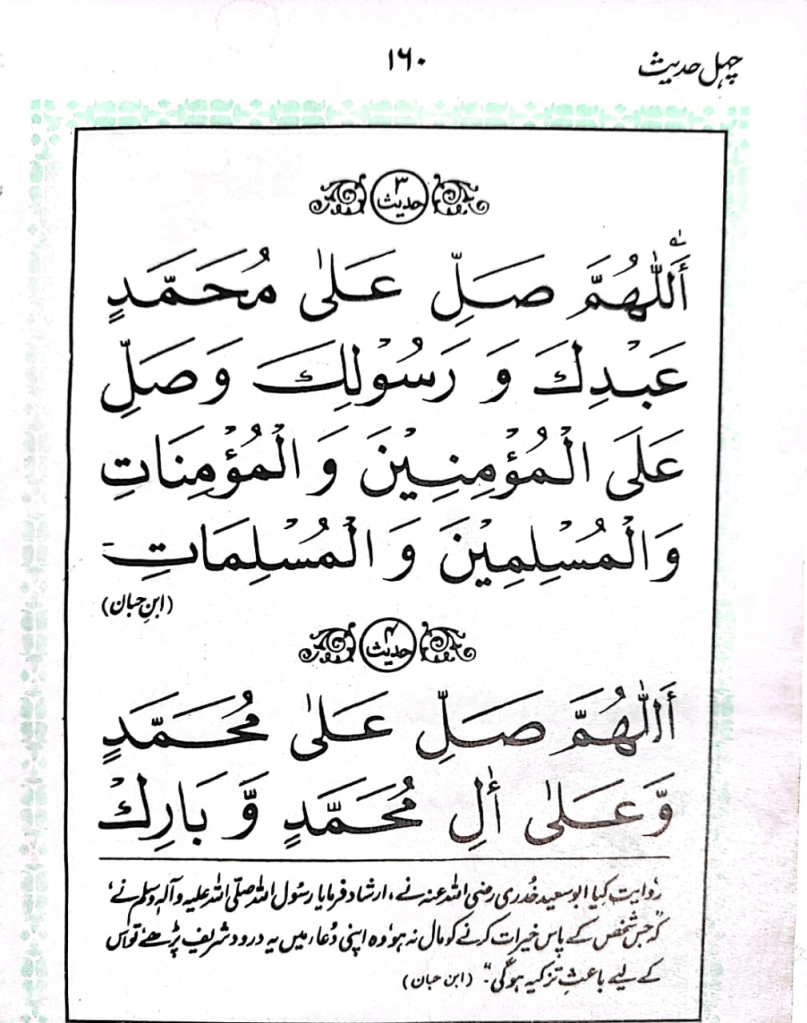 چہل حدیث
۱۶۰
حدیث ۳
أَللّٰهُمَّ صَلِّ عَلىٰ مُحَمَّدٍ
عَبْدِكَ وَ رَسُوْلِكَ وَصَلِّ
عَلَى الْمُؤْمِنِيْنَ وَ الْمُؤْمِنَاتِ
وَالْمُسْلِمِيْنَ وَ الْمُسْلِمَاتِ
(ابنِ حبان)
حدیث ۴
أَللّٰهُمَّ صَلِّ عَلىٰ مُحَمَّدٍ
وَّعَلىٰ أٰلِ مُحَمَّدٍ وَّ بَارِكْ
روایت کیا ابو سعید خُدری رضی اللہ عنہ نے، ارشاد فرمایا رسول اللہ صلّی اللہ علیہ وآلہٖ وسلم نے،
کہ جس شخص کے پاس خیرات کرنے کو مال نہ ہو، وہ اپنی دُعاء میں یہ درود شریف پڑھے، تو اُس
کے لیے باعثِ تزکیہ ہوگی۔" (ابن حبان)